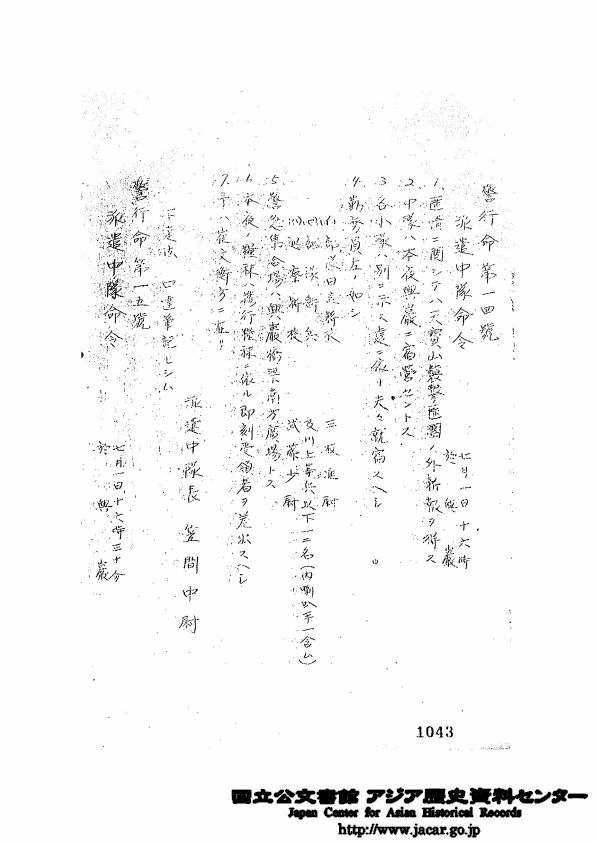 警行命第一四號
七月一日十六時
於興巖
派遣中隊命令
1、匪情ニ関シテハ天寶山襲撃匪團ノ外新報ヲ得ス
2、中隊ハ本夜興巖ニ宿營セントス
3、各小隊ハ別ニ示ス處ニ依リ夫々就宿スヘシ
4、勤務員左ノ如シ
三枝准尉
衛兵 及川上等兵以下一二名(内喇叭手一含ム)
巡察將校 武藤少尉
5、警急集合場ハ興巖街梁南方廣場トス
6、本夜ノ糧秣ハ携行糧秣ニ依ル即刻受領者ヲ差出スヘシ
7、予ハ崔文衡方ニ在リ
派遣中隊長 笠間中尉
下達法 口達筆記セシム
警行命第一五號
七月一日十六時三十分
於興巖
派遣中隊命令
1043
国立公文書館 アジア歴史資料センター
Japan Center for Asian Historical Records
http://www.jacar.go.jp